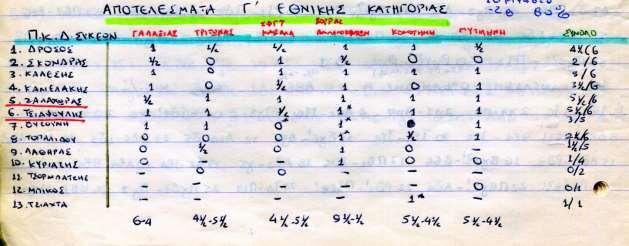 ΑΠΟΤΕΛΕΣΜΑΤΑ Γ' ΕΘΝΙΚΗΣ ΚΑΤΗΓΟΡΙΑΣ
-20 80%
Π.Κ.Δ. ΣΥΚΕΩΝ ΓΑΛΑΞΙΑΣ ΚΑΒΑΛΑ ΚΟΜΟΤΗΝΗ ΣΥΝΟΛΟ
1. ΔΡΟΣΟΣ 1 1/2 1/2 1 1 1/2 4½/6
2. ΣΚΟΝΔΡΑΣ 1/2 0 1 1/2 0 0 2/6
3. ΚΑΛΕΣΗΣ 1 0 0 1 1 0 3/6
4. ΚΑΜΕΛΑΚΗΣ 1 0 1/2 1 0 1 3½/6
5. 1/2 1 1 1 1 1 5½/6
6. 1 1 1/2 1* 1 1 5½/6
7. 1 1 0 1* 0 3/5
8. 0 0 0 1* 1/2 1
9. ΛΑΘΗΡΑΣ 0 1/2 0 1 - - 1½/5
10. ΚΥΡΙΑΖΗΣ 0 - 0 1 - 0 1/4
11. 0 - - - 0 - 0/2
12. ΜΠΙΚΟΣ - - - - - 0 0/1
13. ΤΣΙΑΧΤΑ - - - - 1* - 1/1
6-4 4½-5½ 4½-5½ 9½-½ 5½-4½ 5½-4½